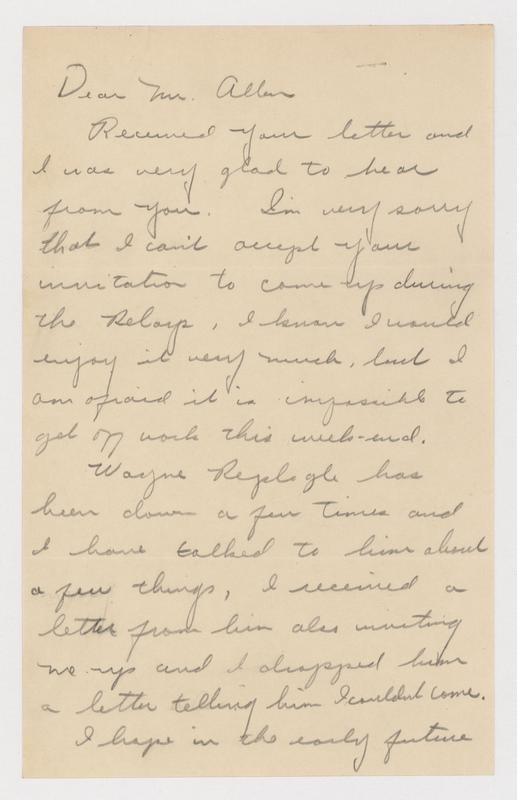 Dear Mr. Allen
Received your letter and
I was very glad to hear
from you. I'm very sorry
that I can't accept your
invitation to come up during
the Relays, I know I would
enjoy it very much, but I
am afraid it is impossible to
get off work this week-end.
Wayne Replogle has
been down a few times and
I have talked to him about
a few things, I received a
letter from him also inviting
me up and I dropped him
a letter telling him I couldn't come.
I hope in the early future